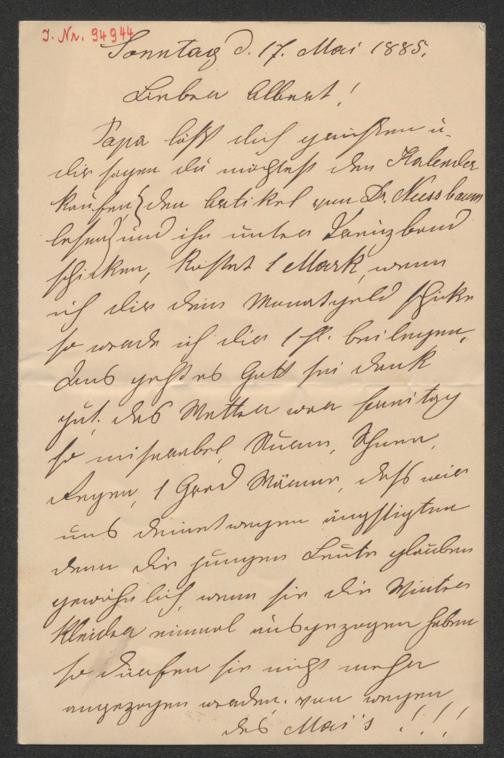 J. Nr. 94944
Sonntag d. 17. Mai 1885.
Lieber Albert!
Papa läßt dich grüßen u.
dir sagen du möchtest den Kalender
kaufen (den Artikel von Dr. Nussbaum
lesen) und ihn unter Kreuzband
schicken, kostet 1 Mark, wenn
ich dir dein Monatgeld schicke
so werde ich dir 1 fl. beilegen,
Uns geht es Gott sei dank
gut. das Wetter war Freitag
so miserabel, Sturm, Schnee,
Regen, 1 Grad Wärme, daß wir
uns deinetwegen ängstigten
denn die jungen Leute glauben
gewöhnlich, wenn sie die Winter
Kleider einmal ausgezogen haben
so dürfen sie nicht mehr
angezogen werden. von wegen
des Mai's !!!